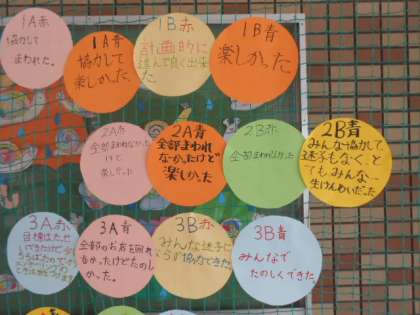 1A赤
協力して
まわれた。
1A青
協力して
楽しかった。
1B赤
計画的に
進んで良く出来
た
1B青
楽しかった。
2A赤
全部まわれなかった
けど
楽しかった
2A青
全部まわれ
なかったけど
楽しかった
2B赤
全部まわれなかった
2B青
みんな協力して、
迷子もなく、と
てもみんな一
生けんめいだった
3A赤
目標はたせ
3A青
全部のお店を回れ
なかったけどたのし
かった。
3B赤
みんな迷子に
ならず協力できた。
3B青
みんなで
たのしくできた。